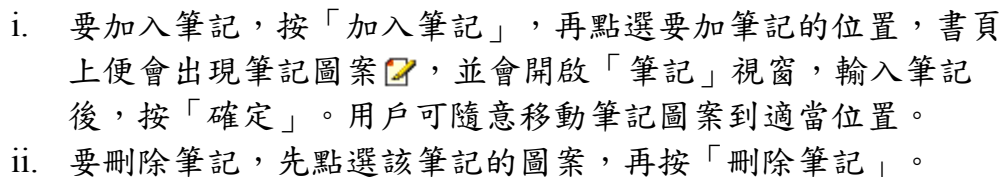 i. 要加入筆記，按「加入筆記」，再點選要加筆記的位置，書頁
上便會出現筆記圖案，並會開啟「筆記」視窗，輸入筆記
後，按「確定」。用戶可隨意移動筆記圖案到適當位置。
ii. 要刪除筆記，先點選該筆記的圖案，再按「刪除筆記」。